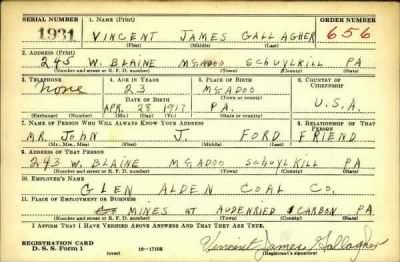 SERIAL NUMBER 1. NAME (Print) ORDER NUMBER
1931 VINCENT JAMES GALLAGHER 656
(First) (Middle) (Last)
2. ADDRESS (Print)
245 W. BLAINE McADOO SCHUYLKILL PA
(Number and street or R. F. D. number) (Town) (County) (State)
3. TELEPHONE 4. AGE IN YEARS 5. PLACE OF BIRTH 6. COUNTRY OF CITIZENSHIP
None 23 McADOO
DATE OF BIRTH (Town or county)
APR. 28 1917 PA. U.S.A.
(Exchange) (Number) (Mo.) (Day) (Yr.) (State or country)
7. NAME OF PERSON WHO WILL ALWAYS KNOW YOUR ADDRESS 8. RELATIONSHIP OF THAT PERSON
MR. JOHN J. FORD FRIEND
(Mr., Mrs., Miss) (First) (Middle) (Last)
9. ADDRESS OF THAT PERSON
243 W. BLAINE McADOO SCHUYLKILL PA
(Number and street or R. F. D. number) (Town) (County) (State)
10. EMPLOYER'S NAME
GLEN ALDEN COAL CO.
11. PLACE OF EMPLOYMENT OR BUSINESS
MINES AT AUDENRIED CARBON PA
(Number and street or R. F. D. number) (Town) (County) (State)
I AFFIRM THAT I HAVE VERIFIED ABOVE ANSWERS AND THAT THEY ARE TRUE.
REGISTRATION CARD
D. S. S. Form 1 (over) 16-17105 Vincent James Gallagher
(Registrant's signature)